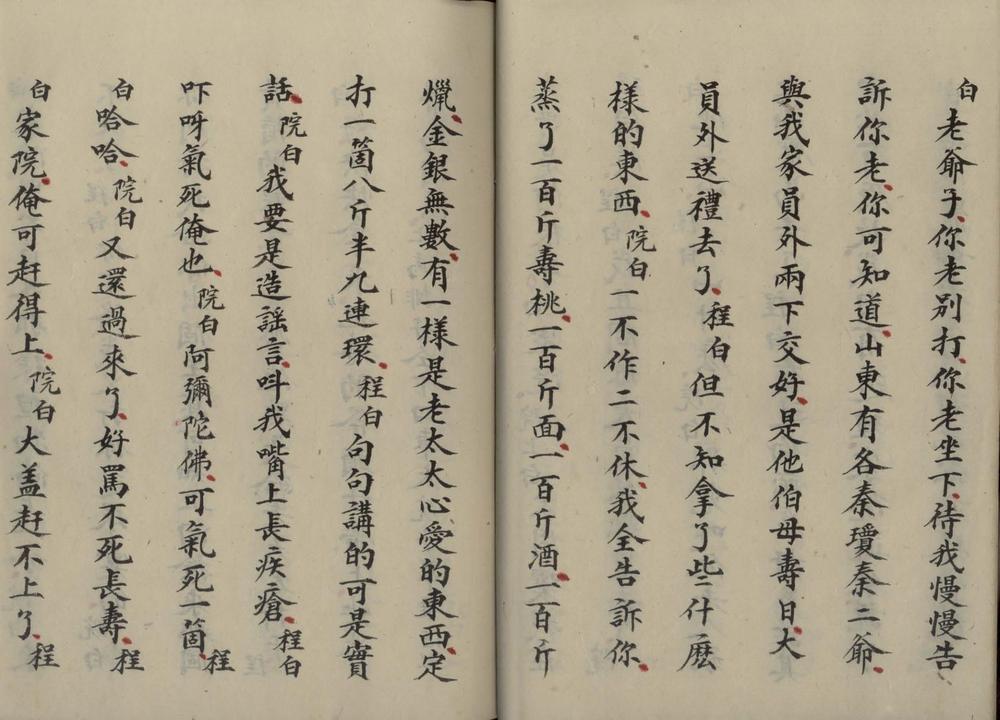 白老爺子你老別打你老坐下待我慢慢告
訴你老你可知道山東有各秦瓊秦二爺
與我家員外兩下交好是他伯母壽日大
員外送禮去了程白但不知拿了些什麼
樣的東西院白一不作二不休我全告訴你
蒸了一百斤壽桃一百斤面一百斤酒一百斤
爉金銀無數有一樣是老太太心愛的東西定
打一箇八斤半九連環程白句句講的可是實
話院白我要是造謡言呌我嘴上長疾瘡程白
吓呀氣死俺也院白阿彌陀佛可氣死一箇程
白哈哈院白又還過來了好罵不死長壽程
白家院俺可赶得上院白大盖赶不上了程